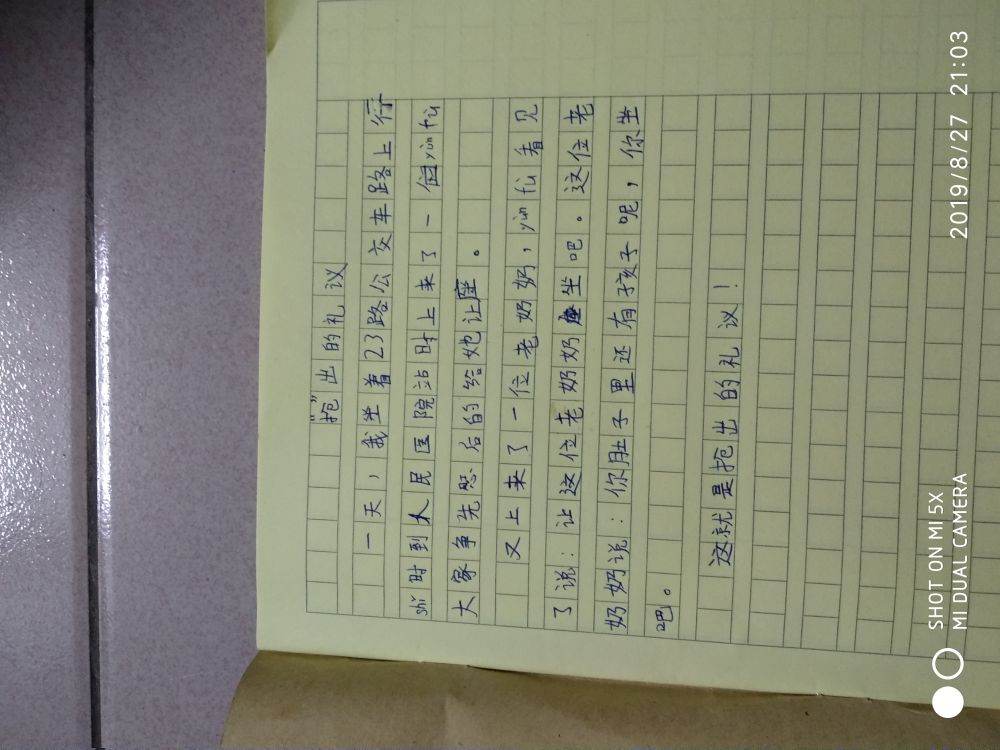 “抢”出的礼议
一天，我坐着23路公交车路上行
shǐ时到人民医院站时上来了一位yùn fù
大家争先恐后的给她让座。
又上来了一位老奶奶，yùn fù看见
了说：让这位老奶奶座坐吧。这位老
奶奶说：你肚子里还有孩子呢，你坐
吧。
这就是抢出的礼议！
SHOT ON MI 5X
MI DUAL CAMERA
2019/8/27 21:03